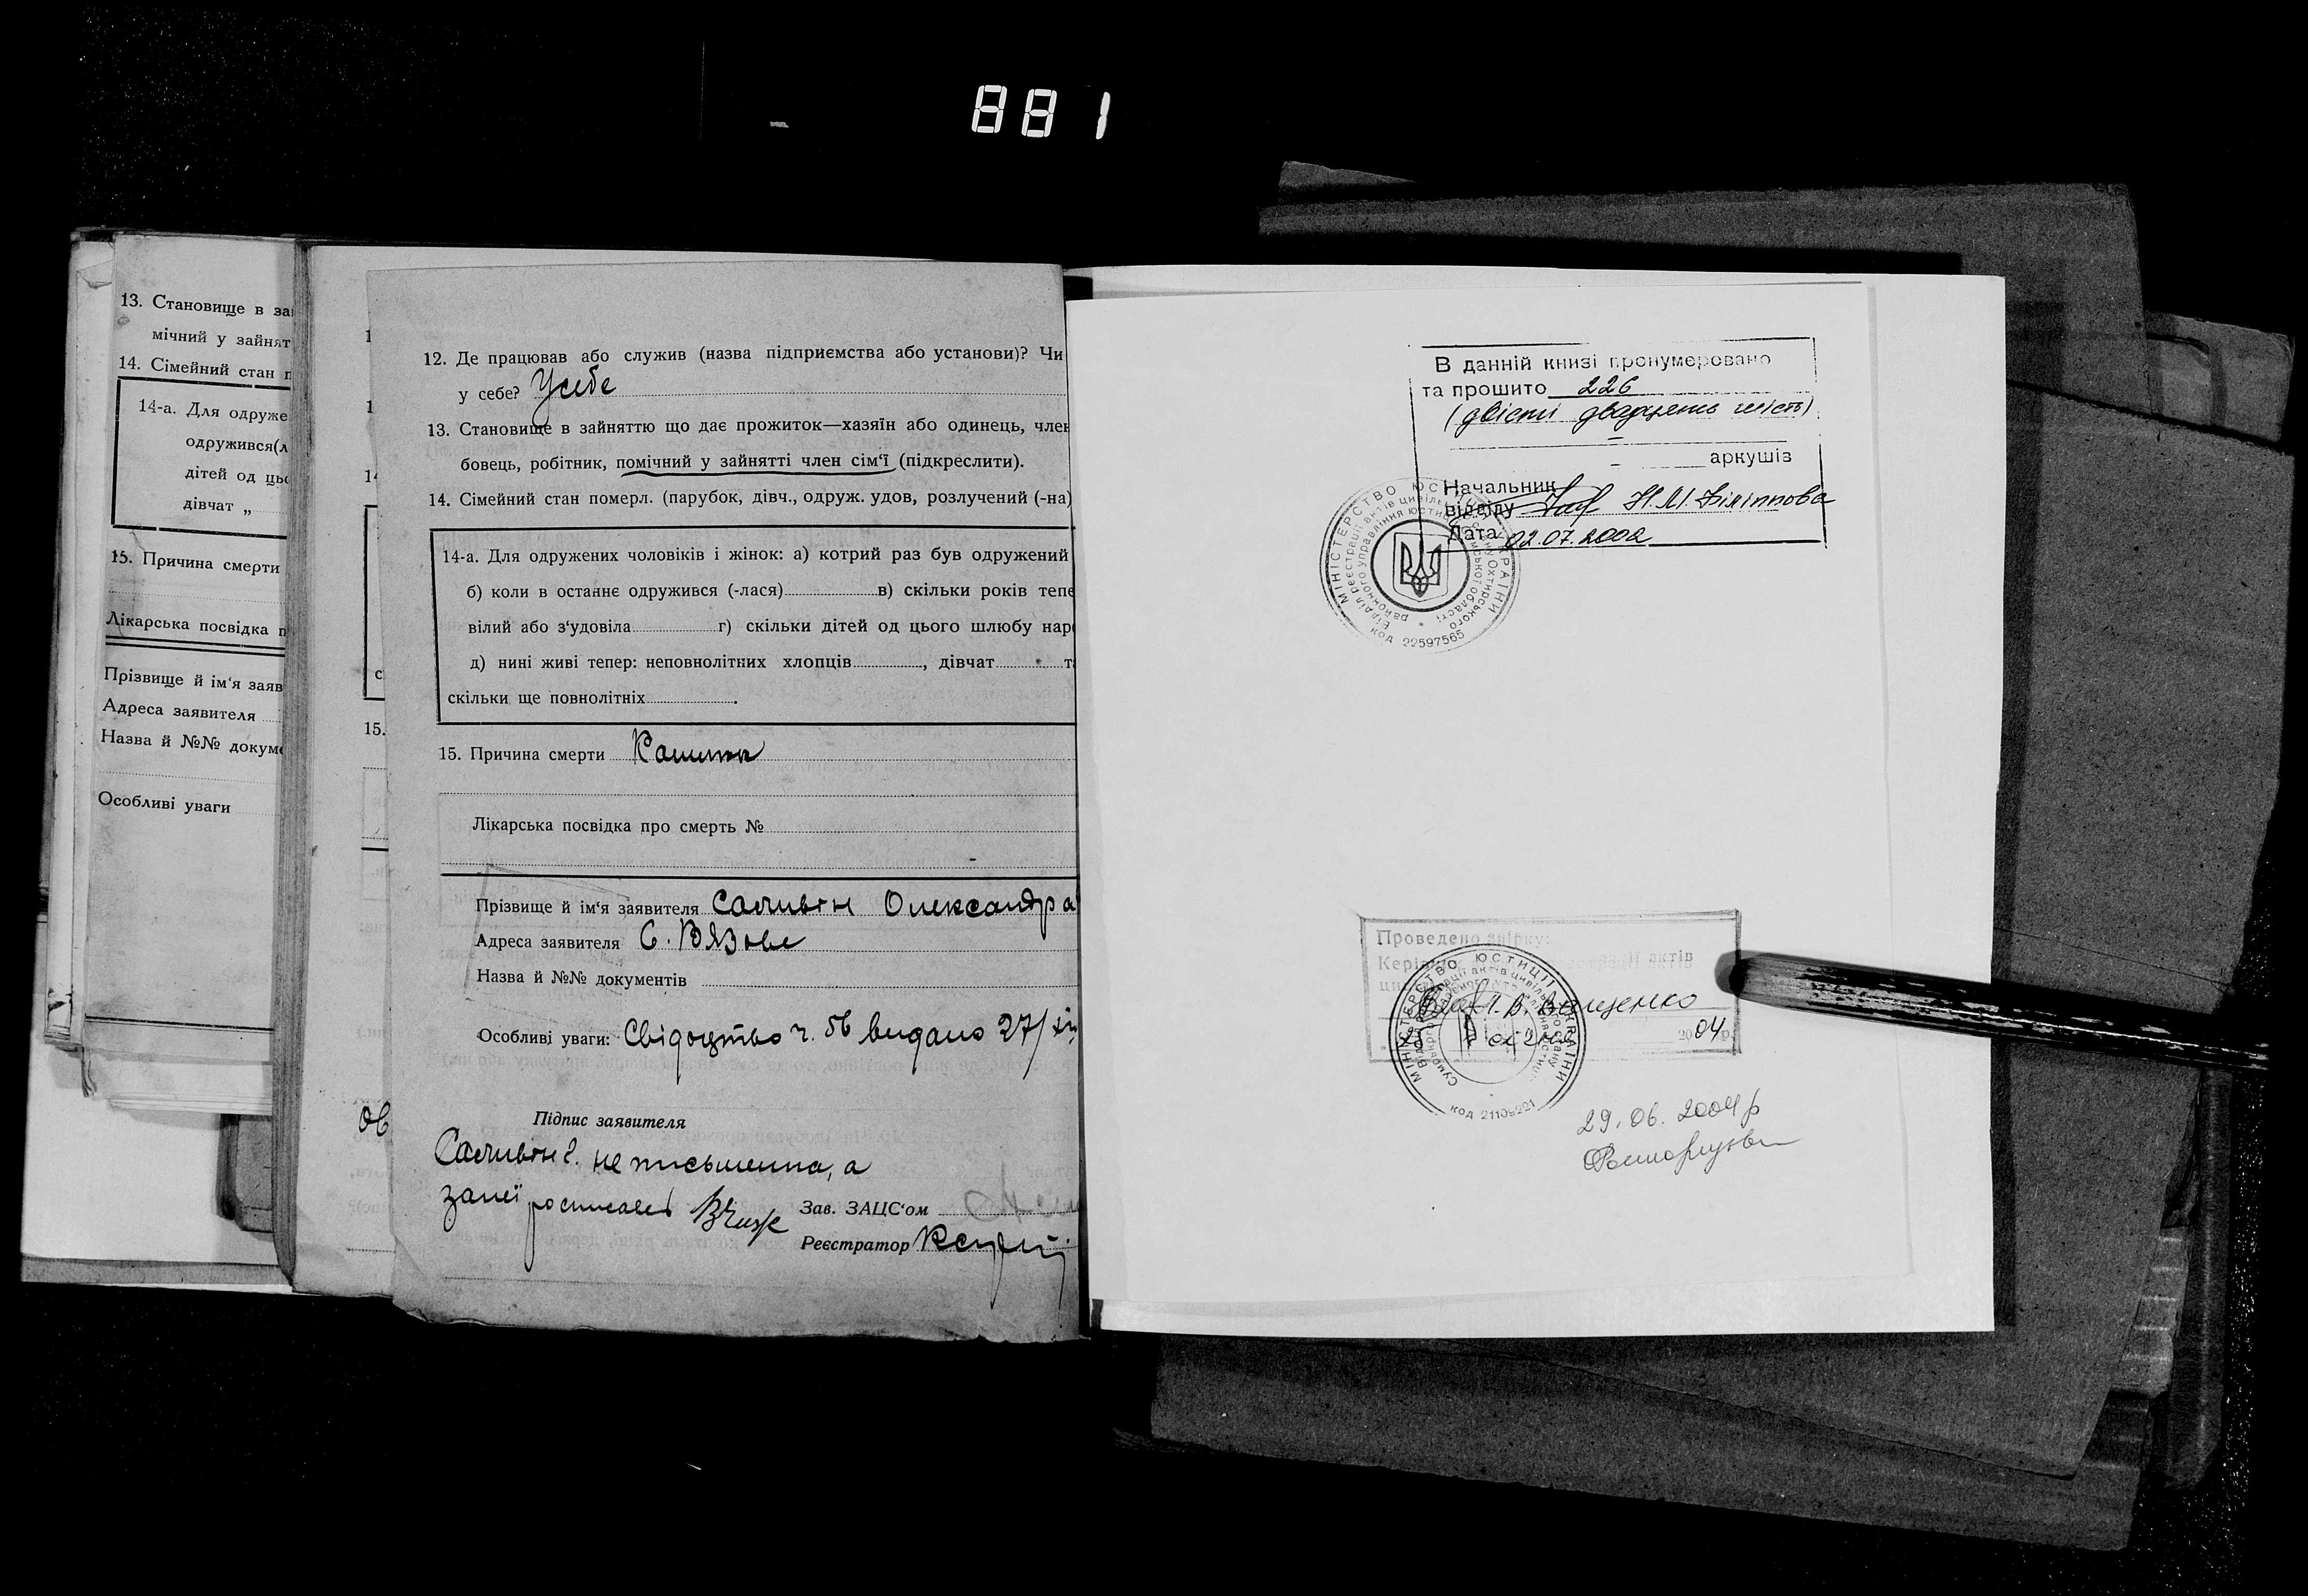 881
13. Становище в за
мічний у зайнят
14. Сімейний стан п
14-а. Для одруже
одружився(л
дітей од ць
дівчат „
15. Причина смерти
Лікарська посвідка п
Прізвище й ім‘я заяв
Адреса заявителя
Назва й №№ докум
Особливі уваги
15.
12. Де працював або служив (назва підприємства або установи)? Чи
у себе? Усебе
13. Становище в зайняттю що дає прожиток—хазяїн або одинець, член
бовець, робітник, помічний у зайнятті член сім‘ї (підкреслити).
14. Сімейний стан померл. (парубок, дівч., одруж. удов, розлучений (-на)
14-а. Для одружених чоловіків і жінок: а) котрий раз був одружений
б) коли в останнє одружився (-лася) в) скільки років тепе
вілий або з‘удовіла г) скільки дітей од цього шлюбу нар
д) нині живі тепер: неповнолітних хлопців , дівчат т
скільки ще повнолітніх .
15. Причина смерти
Лікарська посвідка про смерть №
Прізвище й ім‘я заявителя Саливін Олександра
Адреса заявителя С. Вязове
Назва й №№ документів
Особливі уваги: Свідоцтво ч. 56 видано 27/XII
Підпис заявителя
Саливін неписьменна, а
занеї росписалсь
Зав. ЗАЦС‘ом
Реєстратор
В данній книзі пронумеровано
та прошито 226
(двісті двадцять шість)
аркушів
Начальник
відділу Н.М. Філіппова
Дата 02.07.2002
МІНІСТЕРСТВО ЮСТИЦІЇ УКРАЇНИ
код 22597565
Проведено звірку:
актів
В. Ващенко
25 січня 2004р.
МІНІСТЕРСТВО ЮСТИЦІЇ УКРАЇНИ
код 21108221
29.06.2004р